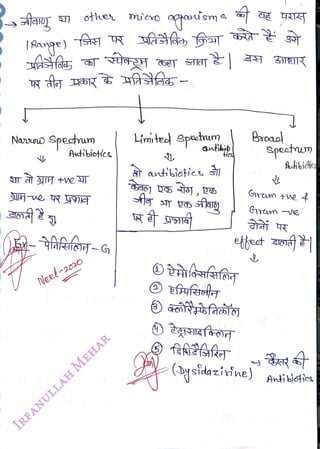 → जीवाणु या other micro oganisms की वह परास
(Range) जिस पर प्रतिजैविक क्रिया करते हैं उसे
प्रतिजैविक का स्पेक्ट्रम कहा जाता है। इस आधार
पर तीन प्रकार के प्रतिजैविक -
Narrow Spectrum
Antibiotics
या तो ग्राम +ve या
ग्राम -ve पर प्रभाव
डालती है
Ex - पेनिसिलिन - G
Neet-2020
Limited Spectrum
antibiotics
वो antibiotics जो
केवल एक रोग, एक
जीव या एक जीवाणु
पर ही प्रभावी
Broad
Spectrum
Antibiotics
Gram +ve व
Gram -ve
दोनों पर
effect डालती हैं।
① ऐमोक्सिसिलिन
② एम्पिसिलीन
③ क्लोरैम्फेनिकॉल
④ टेट्रासाइक्लिन
⑤ डिसिडेजिरिन
(Dysidazirine)
→ कैंसर की
Antibiotics
IRFANULLAH MEHAR